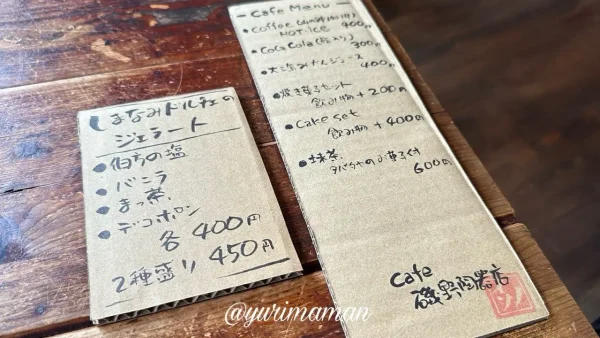 しまなみドルチェの
ジェラート
●伯方の塩
●バニラ
●まっ茶
●デコポン
各 400円
2種盛り 450円
Cafe Menu
●Coffee 400円
HOT・ICE
●CocaCola(瓶入り) 300円
●大三島みかんジュース
400円
●焼き菓子セット
飲み物 +200円
●Cake set
飲み物 +400円
●抹茶
のお菓子付
600円
Cafe
磯野陶器店
@yurimaman